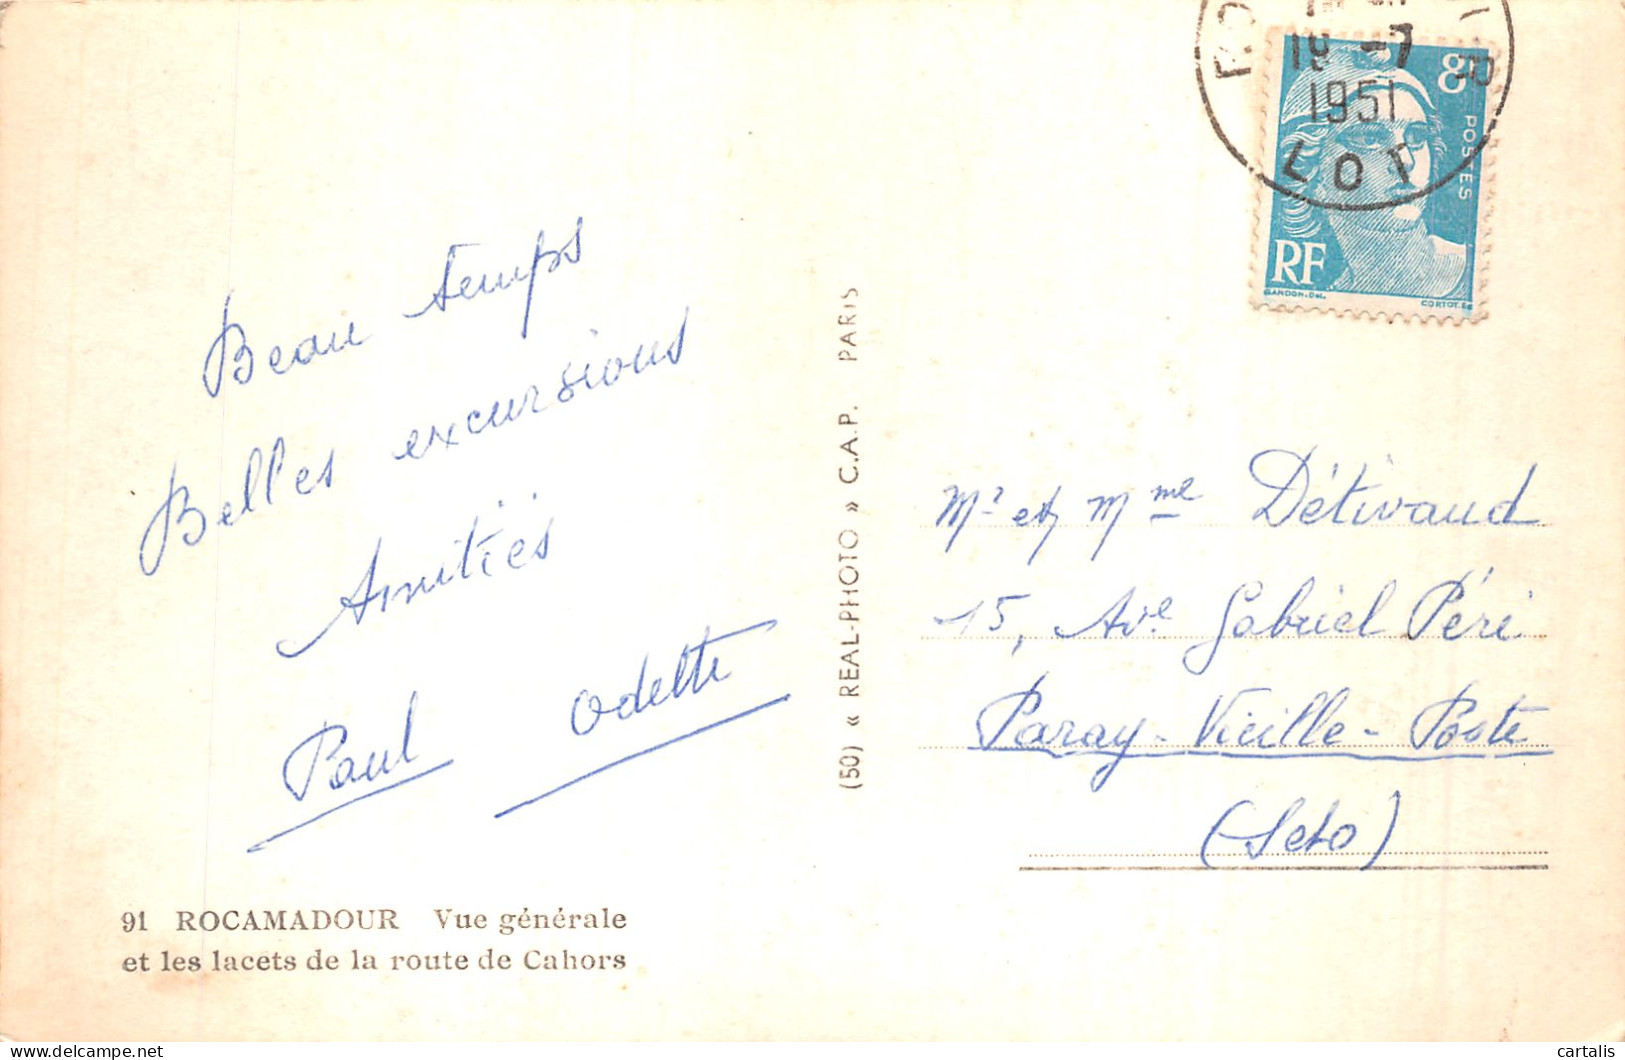 Beau temps
Belles excursions
Amitiés
Paul Odette
91 ROCAMADOUR Vue générale
et les lacets de la route de Cahors
(50) « REAL-PHOTO » C.A.P. PARIS
19 -7
1951
LOT
8F
POSTES
RF
GANDON.Del.
CORTOT.Sc
Mr et Mme Détivaud
15, Ave Gabriel Péri
Paray-Vieille-Poste
(Seto)
delcampe.net
cartalis